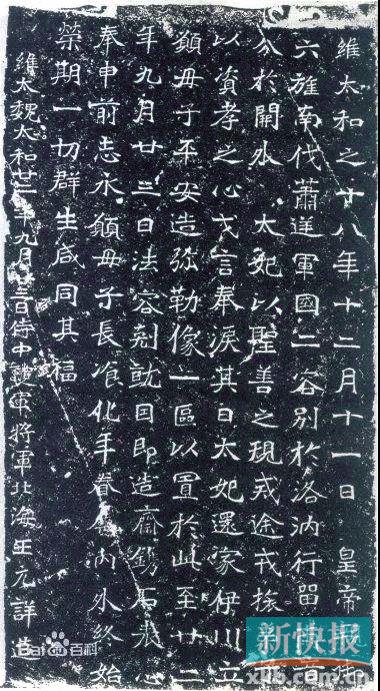 維太和之十八年十二月十一日 皇帝親御
六旌南伐蕭逆軍國二容別於洛汭行留
分於閞外 太妃以聖善之規戒途戎旅
以資孝之心戈言奉淚其日太妃還家伊川立
願母子平安造弥勒像一區以置於此至廿二
年九月廿三日法容剋就因即造齋鐫石表心
奉申前志永願母子長飡化年眷屬內外終始
榮期一切群生咸同其福
維太魏太和廿二年九月廿三日侍中護軍將軍北海王元詳造
Bai百科
新快报
xkb.com.cn